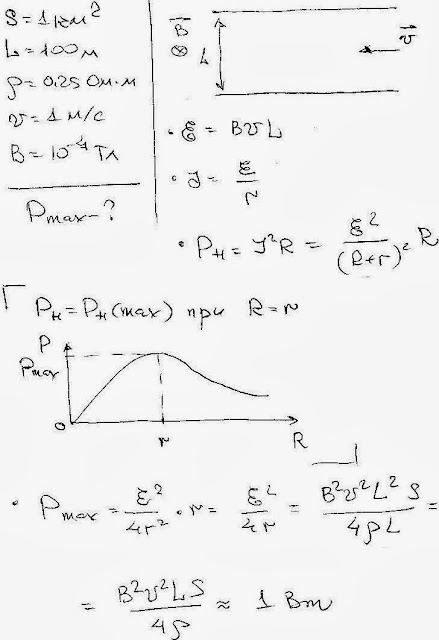 S = 1 км²
L = 100 м
ρ = 0,25 Ом·м
v = 1 м/с
B = 10⁻⁴ Тл
Pmax - ?
B
L
v
· ℰ = BvL
· J = ℰ/r
· Pн = J²R = ℰ²/(R+r)² R
Pн = Pн(max) при R = r
P
Pmax
0
r
R
· Pmax = ℰ²/4r² · r = ℰ²/4r = B²v²L² S/4ρL =
= B²v²LS/4ρ ≈ 1 Вт